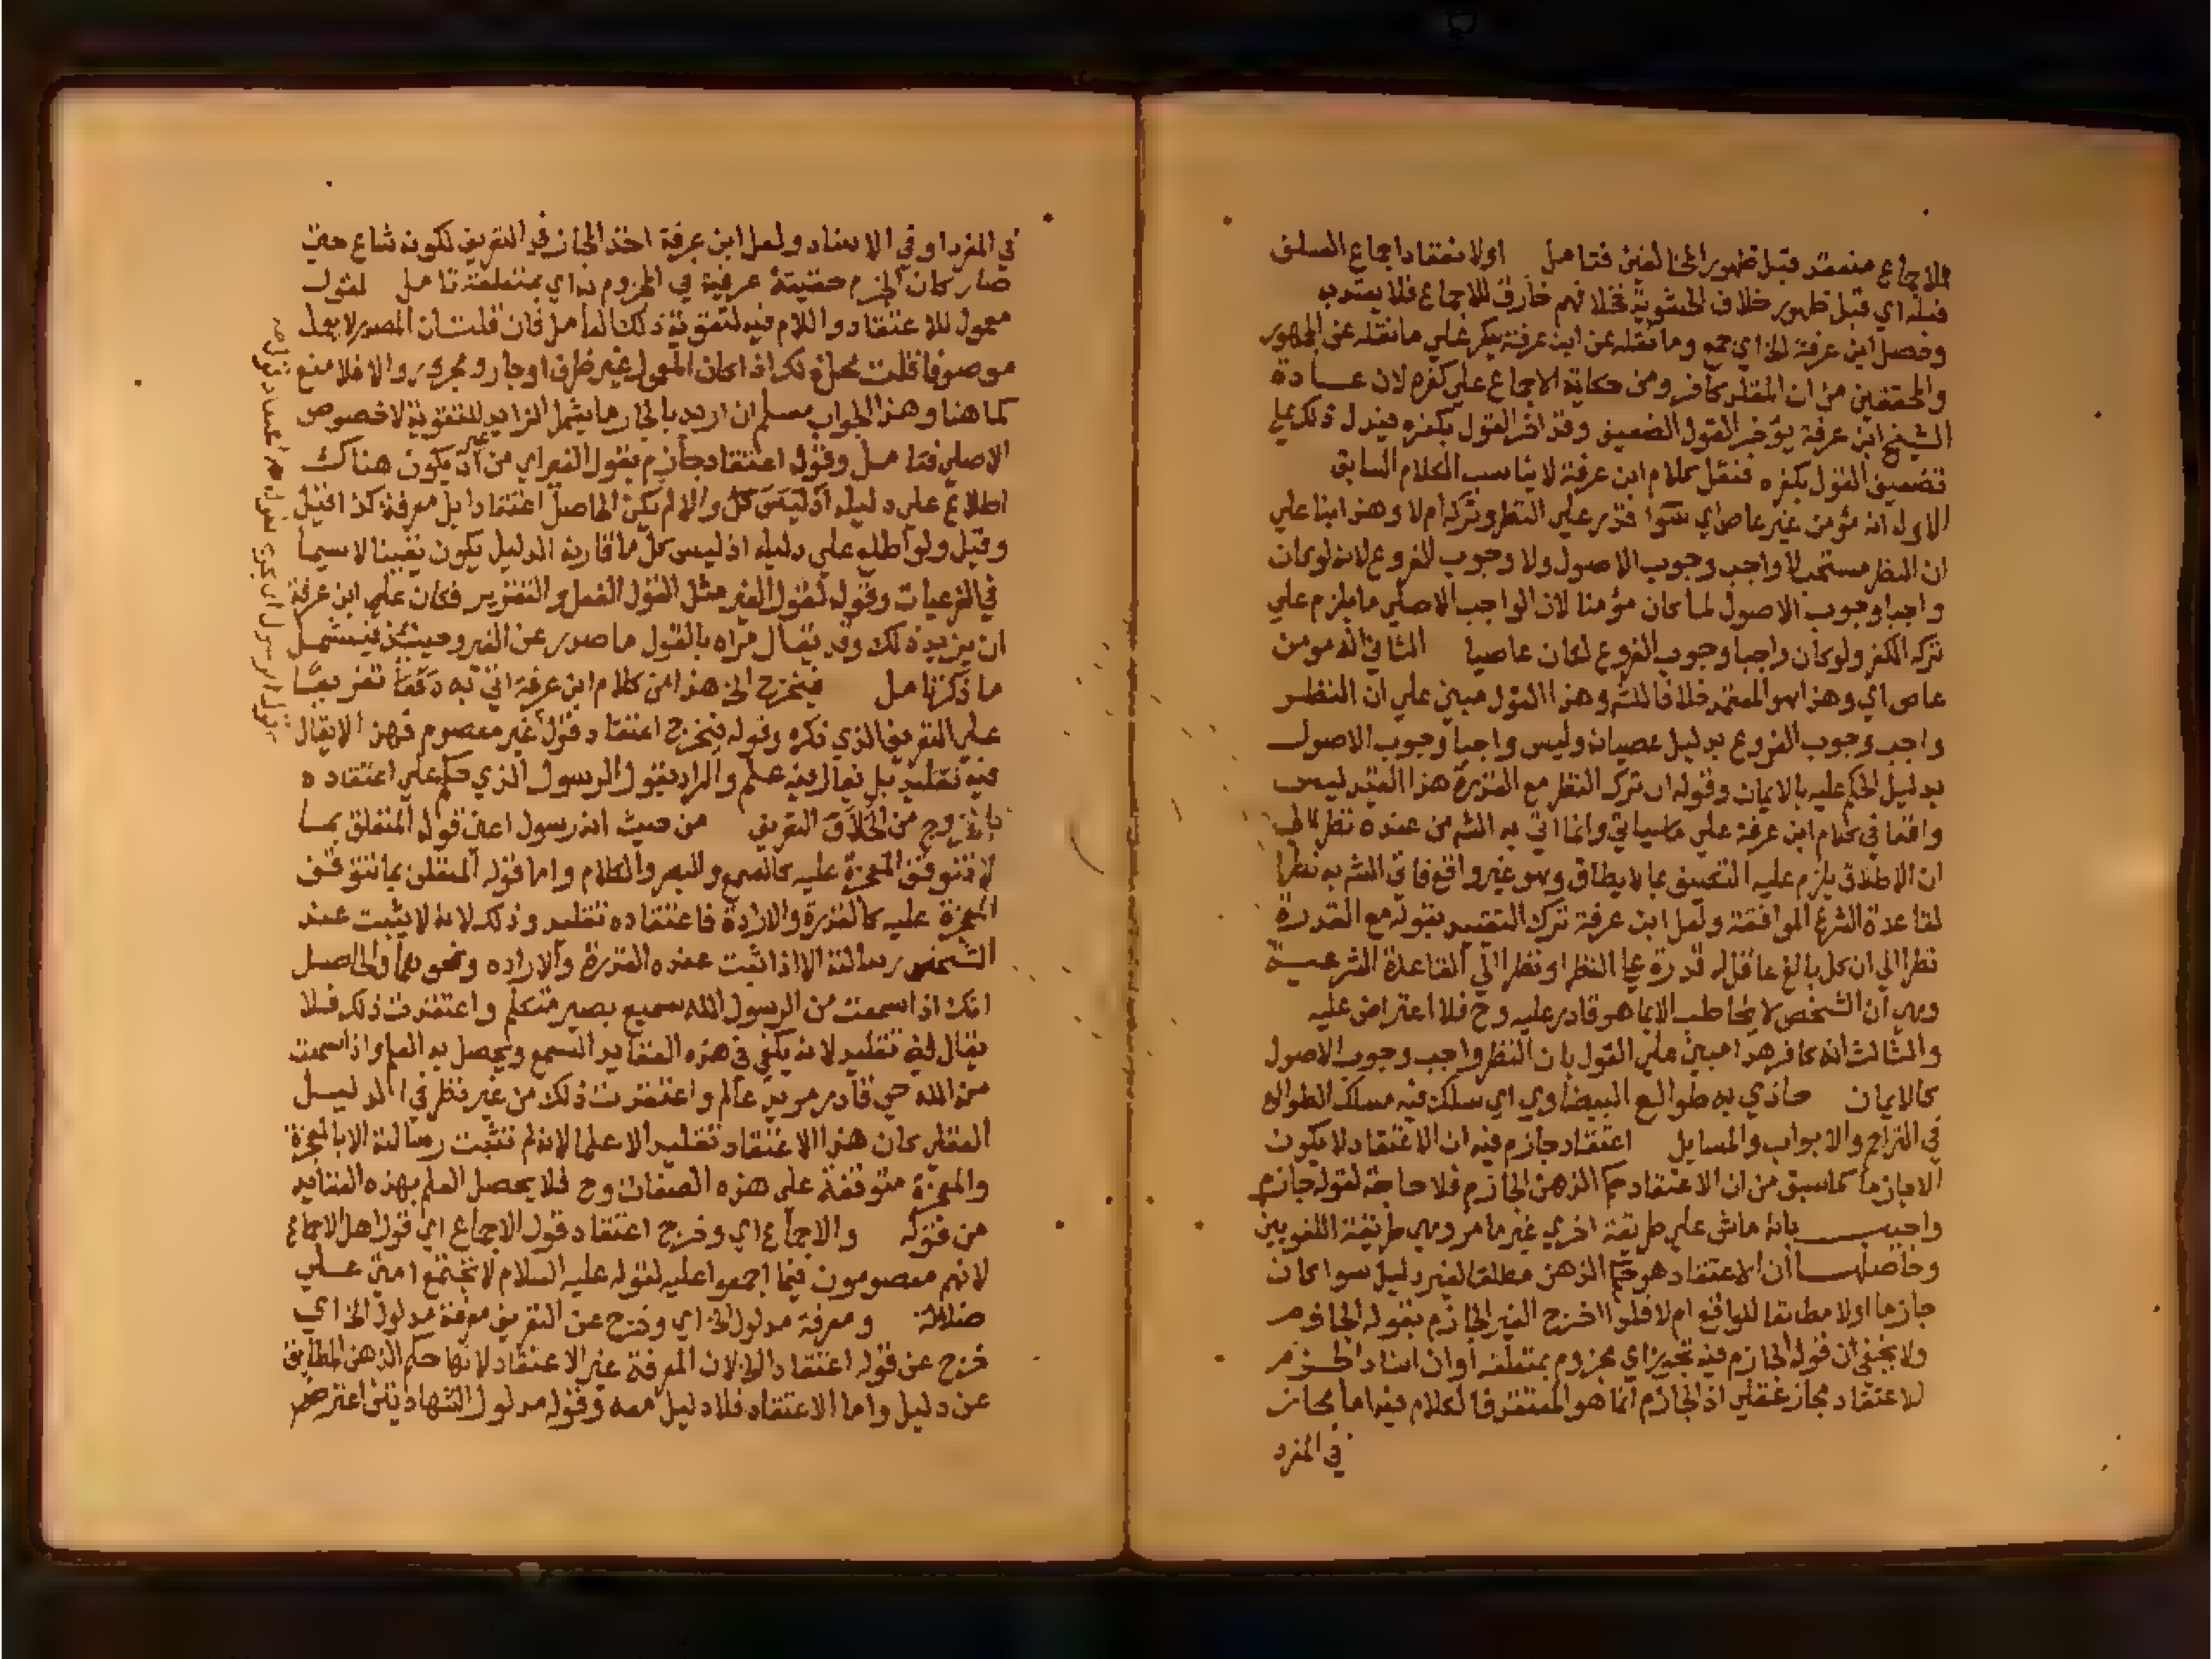 للاجماع منعقد قبل ظهور المخالفين فتامل اولا نعقاد اجماع السلف
قبله اي قبل ظهور خلاف الحشوية فخلافهم خارق للاجماع فلا يعتد به
وحصل ابن عرفة الخ اي جمع وما نقله عن ابن عرفة يكر علي ما نقله عن الجمهور
والمحققين من ان المقلد كافر ومن حكاية الاجماع علي كفره لان عادة
الشيخ ابن عرفة يؤخر القول الضعيف وقد اخر القول بكفره فيدل ذلك علي
تضعيف القول بكفره فنقل كلام ابن عرفة لا يناسب الكلام السابق
الاول انه مؤمن غير عاص اي سوا قدر علي النظر وتركه ام لا وهذا بنا علي
ان النظر مستحب لا واجب وجوب الاصول ولا وجوب الفروع لانه لو كان
واجبا وجوب الاصول لما كان مؤمنا لان الواجب الاصلي ما يلزم علي
تركه الكفر ولو كان واجبا وجوب الفروع لكان عاصيا الثاني انه مومن
عاص اي وهذا هو المعتمد خلافا للشم وهذا القول مبني علي ان النظر
واجب وجوب الفروع بدليل عصيانه وليس واجبا وجوب الاصول
بدليل الحكم عليه بالايمان وقوله ان ترك النظر مع القدرة هذا القيد ليس
واقعا في كلام ابن عرفة علي ما سياتي وانما اتي به الشم من عنده نظرا الي
ان الاطلاق يلزم عليه التكليف بما لا يطاق وهو غير واقع فاتي الشم به نظرا
لقاعدة الشرع الموافقة ولعل ابن عرفة ترك التقييد بقوله مع القدرة
نظرا الي ان كل بالغ عاقل له قدرة علي النظر او نظرا الي القاعدة الشرعية
وهي ان الشخص لا يخاطب الا بما هو قادر عليه وح فلا اعتراض عليه
والثالث انه كافر هذا مبني علي القول بان النظر واجب وجوب الاصول
كالايمان حاذي به طوالع البيضاوي اي سلك فيه مسلك الطوالع
في التراجم والابواب والمسايل اعتقاد جازم فيه ان الاعتقاد لا يكون
الا جازما كما سبق من ان الاعتقاد حكم الذهن الجازم فلا حاجة لقوله جازم
واجيب بانه ماشي علي طريقة اخري غير ما مر وهي طريقة اللغويين
وحاصلها ان الاعتقاد هو حكم الذهن مطلقا لغير دليل سوا كان
جازما اولا مطابقا للواقع ام لا فلذا اخرج الغير الجازم بقوله الجازم
ولا يخفي ان قوله الجازم فيه تجوز اي مجزوم بمتعلقه او ان اسناد الجزم
للاعتقاد مجاز عقلي اذ الجازم انما هو المعتقد فالكلام فيه اما مجاز
في المفرد
في المفرد او في الاسناد ولعل ابن عرفة اخذ المجاز في التعريف لكونه شاع حتي
صار كان الجزم حقيقة عرفية في المجزوم به اي بمتعلقه تامل لقول
معمول للاعتقاد واللام فيه لتقوية ذلك العامل فان قلت ان المصدر لا يعمل
موصوفا قلت محل ذلك اذا كان المعمول غير ظرف او جار ومجرور والا فلا منع
كما هنا وهذا الجواب مسلم ان اريد بالجار ما يشمل الزايد للتقوية لا خصوص
الاصلي فتامل وقوله اعتقاد جازم بقول الغير اي من غير ان يكون هناك
اطلاع علي دليله اذ ليس كل والا لم يكن الحاصل اعتقادا بل معرفة كذا قيل
وقيل ولو اطلع علي دليله اذ ليس كل ما قارنه الدليل يكون يقينا لا سيما
في الفرعيات وقوله لقول الغير مثل القول الفعل والتقرير فكان علي ابن عرفة
ان يزيد ذلك وقد يقال مراده بالقول ما صدر عن الغير وحينئذ فيشمل
ما ذكرنا مل فيخرج الخ هذا من كلام ابن عرفة اتي به تفريعا
علي التعريف الذي ذكره وقوله فيخرج اعتقاد قول غير معصوم فهذا لا يقال
فيه تقليد بل يقال فيه علم والمراد بقول الرسول الذي حكم علي اعتقاده
بالخروج من التعريف من حيث انه رسول اعني قوله المتعلق بما
لا تتوقف المعجزة عليه كالسمع والبصر والكلام واما قوله المتعلق بما تتوقف
المعجزة عليه كالقدرة والارادة فاعتقاده تقليد وذلك لانه لا يثبت عند
الشخص رسالته الا اذا ثبت عنده القدرة والاراده ونحوهما والحاصل
انك اذا سمعت من الرسول الله سميع بصير متكلم واعتقدت ذلك فلا
يقال فيه تقليد لانه يكفي في هذه العقايد السمع ويحصل به العلم واذا سمعت
منه الله حي قادر مريد عالم واعتقدت ذلك من غير نظر في الدليل
العقلي كان هذا الاعتقاد تقليدا لا علما لانه لم تثبت رسالته الا بالمعجزة
والمعجزة متوقفة علي هذه الصفات وح فلا يحصل العلم بهذه العقايد
من قوله والاجماع اي وخرج اعتقاد قول الاجماع اي قول اهل الاجماع
لانهم معصومون فيما اجمعوا عليه لقوله عليه السلام لا تجتمع امتي علي
ضلالة ومعرفة مدلول الخ اي وخرج عن التعريف معرفة مدلول الخ اي
خرج عن قوله اعتقاد الخ لان المعرفة غير الاعتقاد لانها حكم الذهن المطابق
عن دليل واما الاعتقاد فلا دليل معه وقوله مدلول الشهادتين اعترض